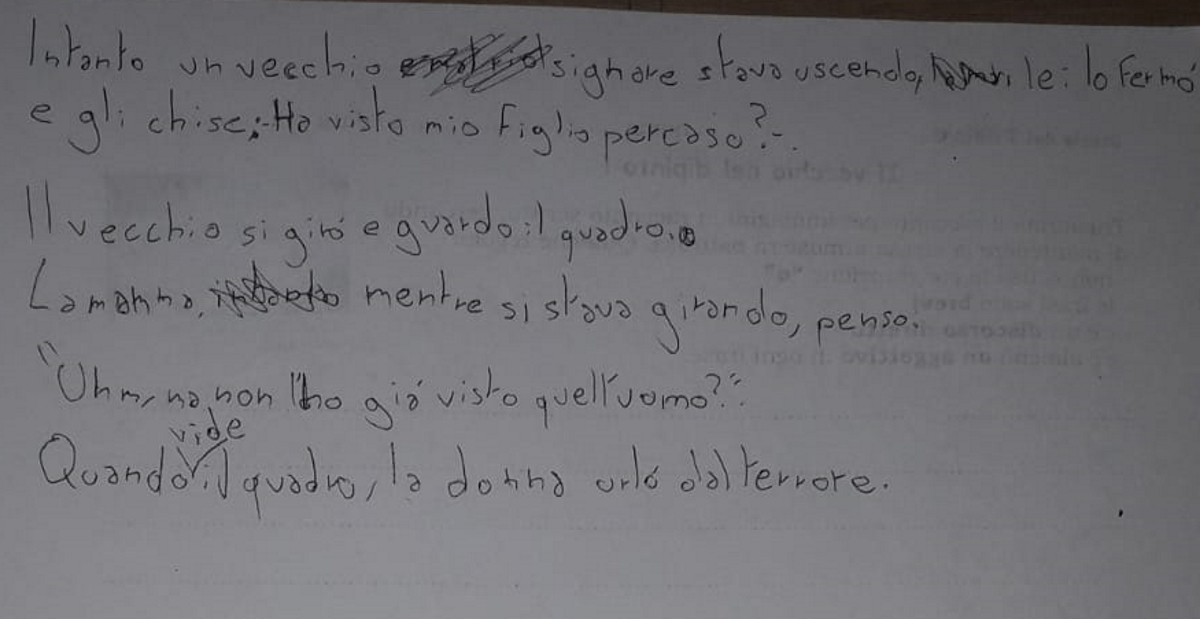 Intanto un vecchio signore stava uscendo, lei lo fermó
e gli chise:-Ha visto mio figlio percaso?-.
Il vecchio si giró e guardo il quadro.
La mamma, mentre si stava girando, penso.
"Uhm, ma non l'ho giá visto quell'uomo?".
vide
Quando il quadro, la donna urló dal terrore.